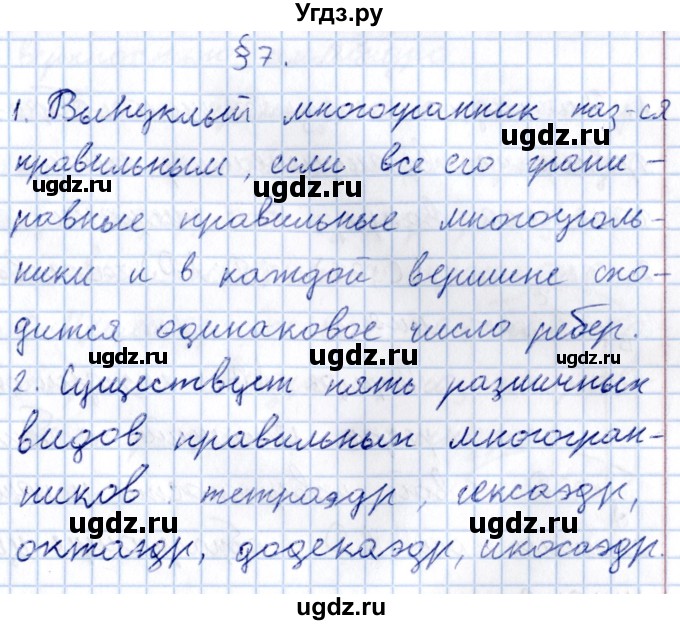 Угдз.ру
§ 7.
1. Выпуклый многогранник наз-ся
правильным, если все его грани -
равные правильные многоуголь-
ники и в каждой вершине схо-
дится одинаковое число ребер.
2. Существует пять различных
видов правильных многогран-
ников: тетраэдр, гексаэдр,
октаэдр, додекаэдр, икосаэдр.
ugdz.ru